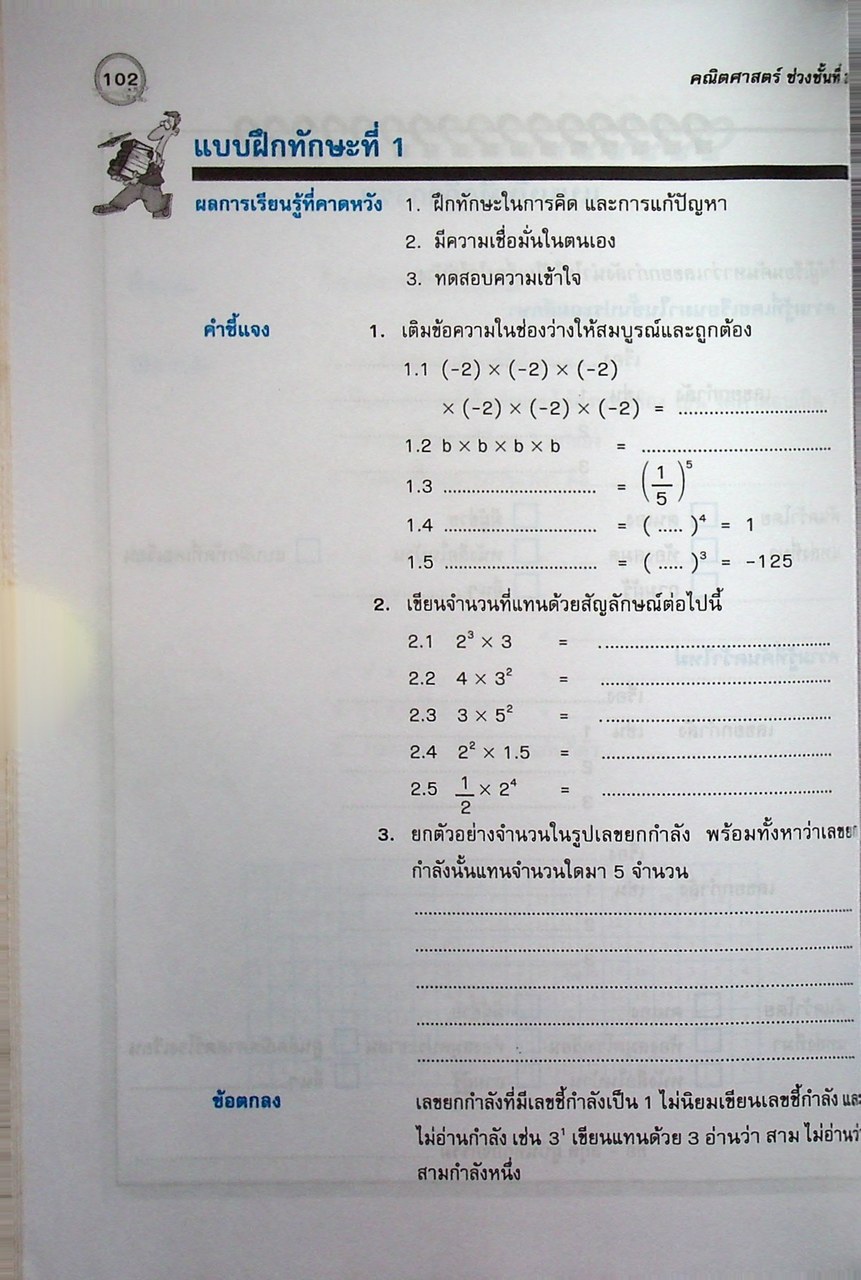 102
คณิตศาสตร์ ช่วงชั้นที่
แบบฝึกทักษะที่ 1
ผลการเรียนรู้ที่คาดหวัง 1. ฝึกทักษะในการคิด และการแก้ปัญหา
2. มีความเชื่อมั่นในตนเอง
3. ทดสอบความเข้าใจ
คำชี้แจง 1. เติมข้อความในช่องว่างให้สมบูรณ์และถูกต้อง
1.1 (-2) × (-2) × (-2)
× (-2) × (-2) × (-2) = ..............................
1.2 b × b × b × b = ......................................
1.3 .............................. = (1/5)⁵
1.4 .............................. = ( ..... )⁴ = 1
1.5 .............................. = ( ..... )³ = -125
2. เขียนจำนวนที่แทนด้วยสัญลักษณ์ต่อไปนี้
2.1 2³ × 3 = ..............................................
2.2 4 × 3² = ..............................................
2.3 3 × 5² = ..............................................
2.4 2² × 1.5 = ..............................................
2.5 1/2 × 2⁴ = ..............................................
3. ยกตัวอย่างจำนวนในรูปเลขยกกำลัง พร้อมทั้งหาว่าเลขยก
กำลังนั้นแทนจำนวนใดมา 5 จำนวน
................................................................................
................................................................................
................................................................................
................................................................................
................................................................................
ข้อตกลง เลขยกกำลังที่มีเลขชี้กำลังเป็น 1 ไม่นิยมเขียนเลขชี้กำลัง และ
ไม่อ่านกำลัง เช่น 3¹ เขียนแทนด้วย 3 อ่านว่า สาม ไม่อ่านว่า
สามกำลังหนึ่ง